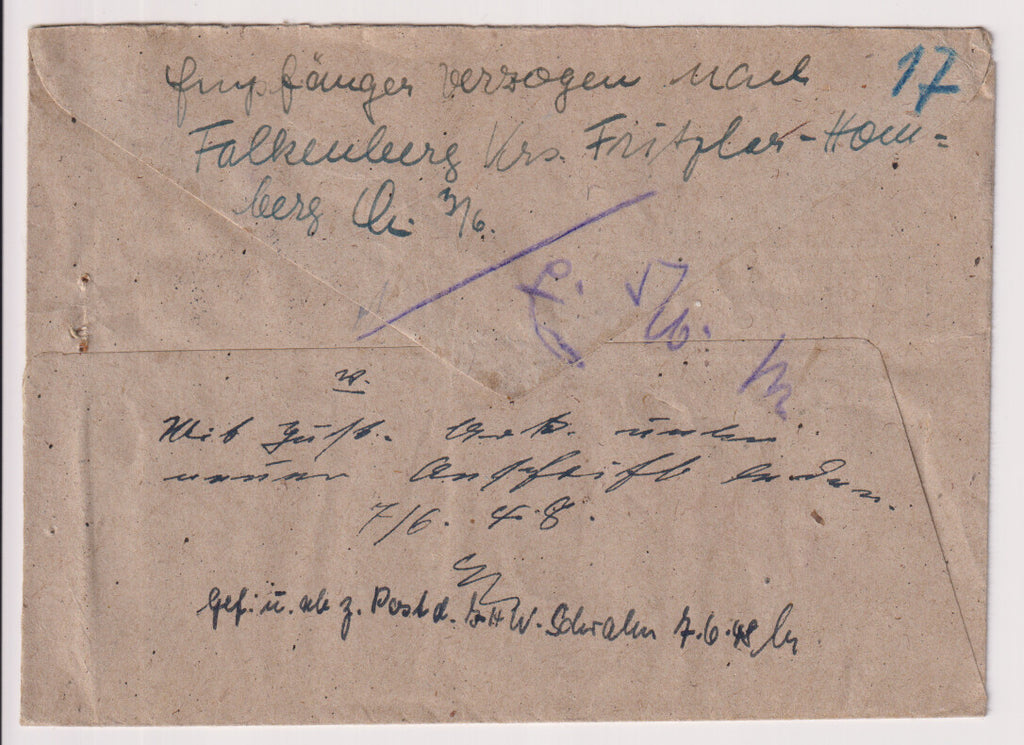 17
Empfänger verzogen nach
Falkenberg Krs. Fritzlar-Hom=
berg 3/6.
5/6.
v.
Mit Zust. unter
neuer Anschrift laden.
7/6. 48.
Gef. u. ab z. Post d. W. Schwalm 7.6.48